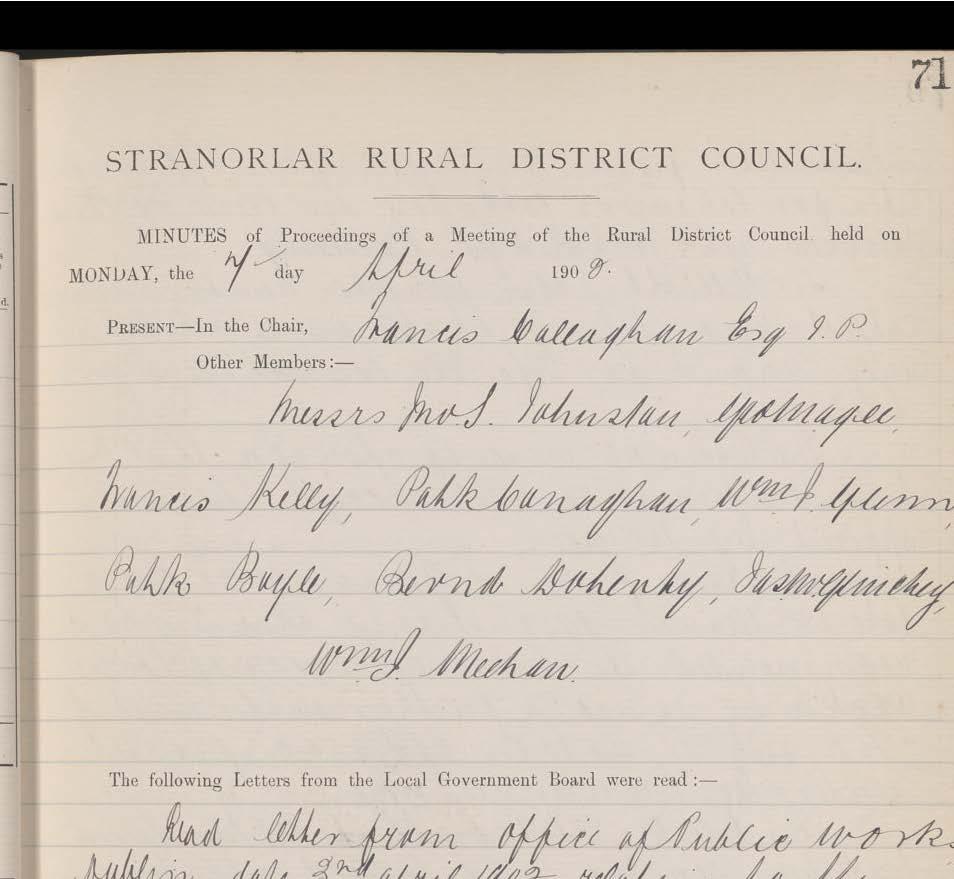 71
STRANORLAR RURAL DISTRICT COUNCIL.
MINUTES of Proceedings of a Meeting of the Rural District Council held on
MONDAY, the 7 day April 1902.
PRESENT—In the Chair, Francis Callaghan Esq J. P.
Other Members:—
Messrs Jno. S. Johnston,
Francis Kelly, Patk Canaghan, Wm J.
Patk Boyle, Bernd Doherty,
Wm J. Meehan.
The following Letters from the Local Government Board were read :—
Read letter from office of Public Works
Dublin date 2nd April 1902